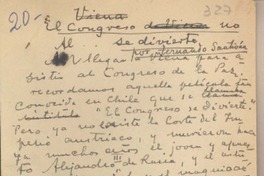 20-
Viena
327
El Congreso de Viena no
se divierte
por Fernando Santiván
Al llegar a Viena para a
sistir al Congreso de la Paz,
recordamos aquella película tan
conocida en Chile que se llama
intitula "El Congreso se divierte".
Pero ya no existe la Corte del Im
perio austriaco, y murieron hace
ya muchos años el joven y
Alejandro III de Rusia, y el